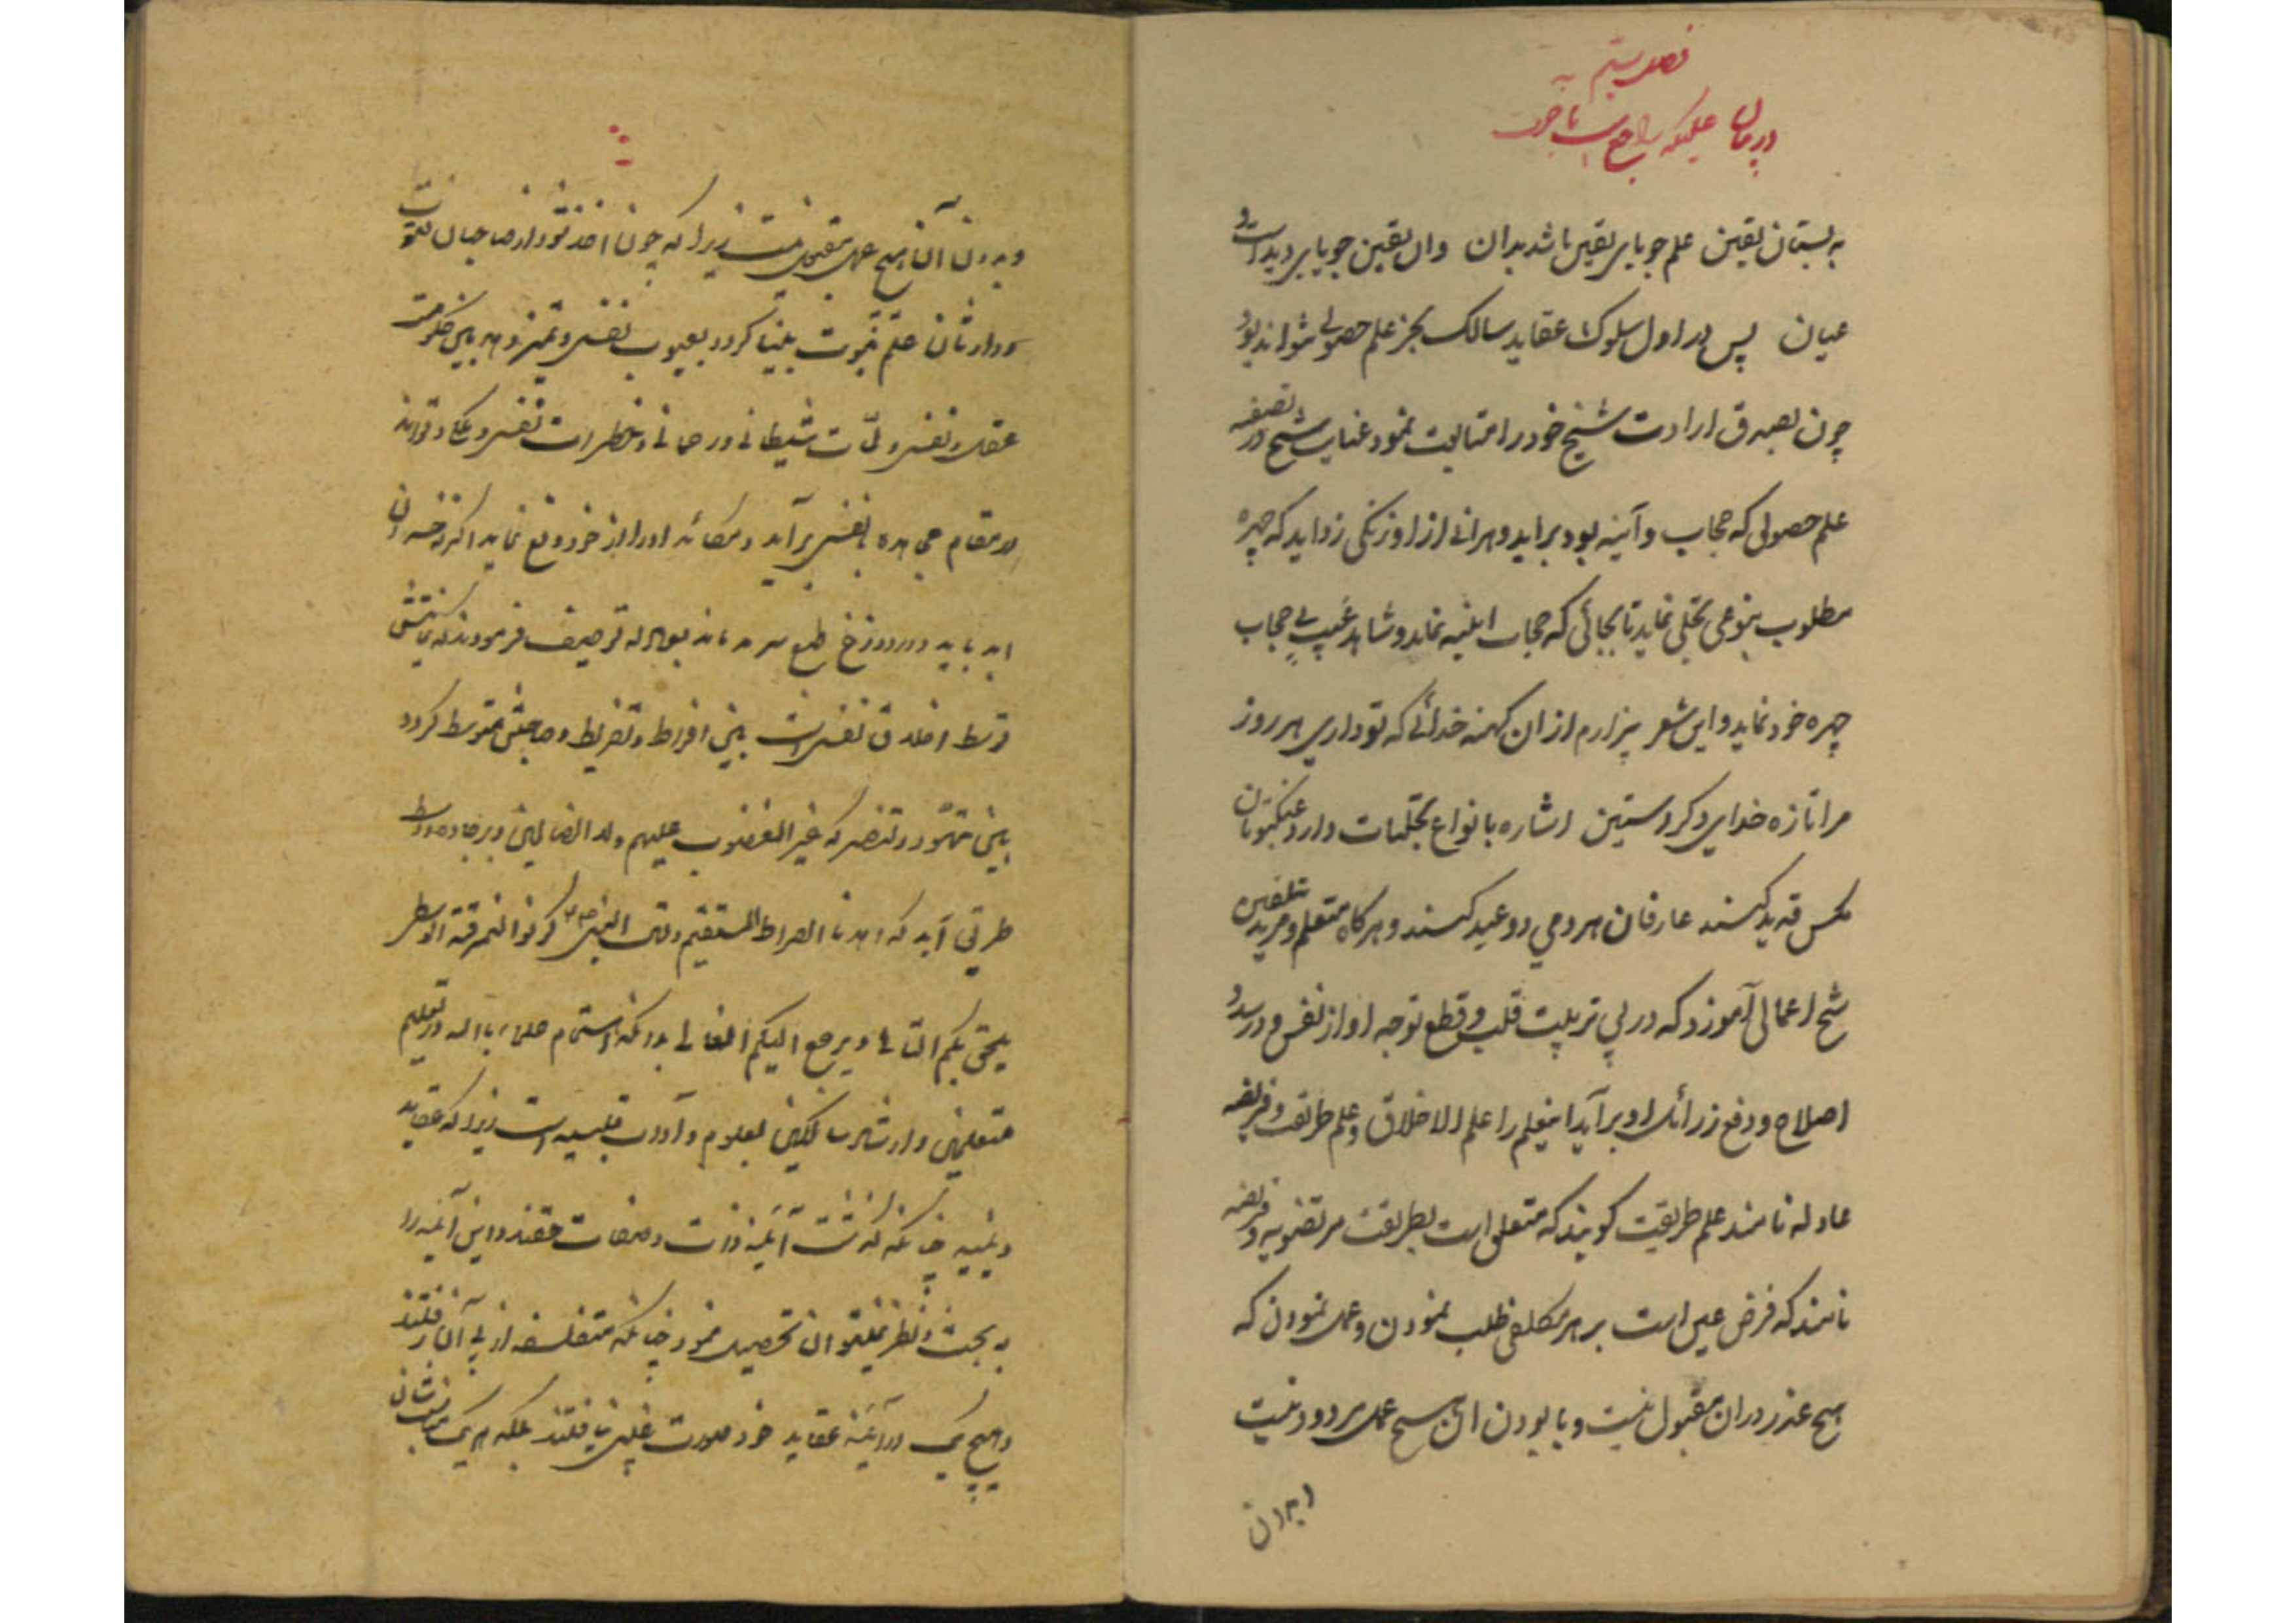 فصل بیستم
در بیان علمیکه راجع است بآخرت
به بستان یقین علم جویای یقین باشد بدان وان یقین جویای دید است و
عیان پس در اول سلوک عقاید سالک بجز علم حصولی نتواند بود
چون بصدق ارادت شیخ خود را متابعت نمود عنایت شیخ در تصفیه
علم حصولی که حجاب و آینه بود براید و هر آنی از او زنگی زداید که چهره
مطلوب بنوعی تجلی نماید تا بجائی که حجاب اینیه نماند و شاهد غیب بی حجاب
چهره خود نماید و این شعر بیزارم از ان کهنه خدائی که تو داری هر روز
مرا تازه خدای دکر دستین اشاره بانواع تجلیات دارد عنکبوتان
مکس قدید کنند عارفان هر دمی دو عید کنند و هرگاه متعلم و مرید بتلقین
شیخ اعمالی آموزد که در پی تربیت قلب و قطع توجه او از نفس و در سدد
اصلاح و دفع زرائل او برآید اینعلم را علم الاخلاق و علم طریقت و فریضه
عادله نامند علم طریقت کویند که متعلق است بطریقت مرتضویه و فریضه
نامند که فرض عین است بر هر مکلفی طلب نمودن و عمل نمودن که
هیچ عذر در ان مقبول نیست و با بودن ان هیچ عمل مردود نیست
و بدون
و بدون آن هیچ عمل مقبول نیست زیرا که چون اخذ شود از صاحبان فتوت
و وارثان علم نبوت بینا کردد بعیوب نفس و تمیز دهد بین حکومت
عقل و نفس و لمّات شیطانی و رحمانی و خطرات نفس و ملکی و تواند
در مقام مجاهده با نفس برآید و مکائد او را از خود دفع نماید اگرنه خسران
ابد یابد و در دوزخ طبع سرمد ماند بعادله توصیف فرمودند که نتیجه‌اش
توسط اخلاق نفس است بین افراط و تفریط و صاحبش متوسط کردد
بین تهوّد و تنصر که غیر المغضوب علیهم ولا الضالین و بر جاده وسط
طریق آید که اهدنا الصراط المستقیم و قال النبی ص کونوا النمرقة الوسطی
یلحق بکم التالی و یرجع الیکم الغالی بدانکه اهتمام علماء بالله در تعلیم
متعلمین و ارشاد سالکین بعلوم و آداب قلبیه است زیرا که عقاید
دینیه چنانکه گذشت آئینه ذات و صفات حقند و این آئینه را
به بحث و نظر نمیتوان تحصیل نمود چنانکه متفلسفه از پی آن رفتند
و هیچ یک در آئینه عقاید خود صورت غیبی نیافتند بلکه هر یک